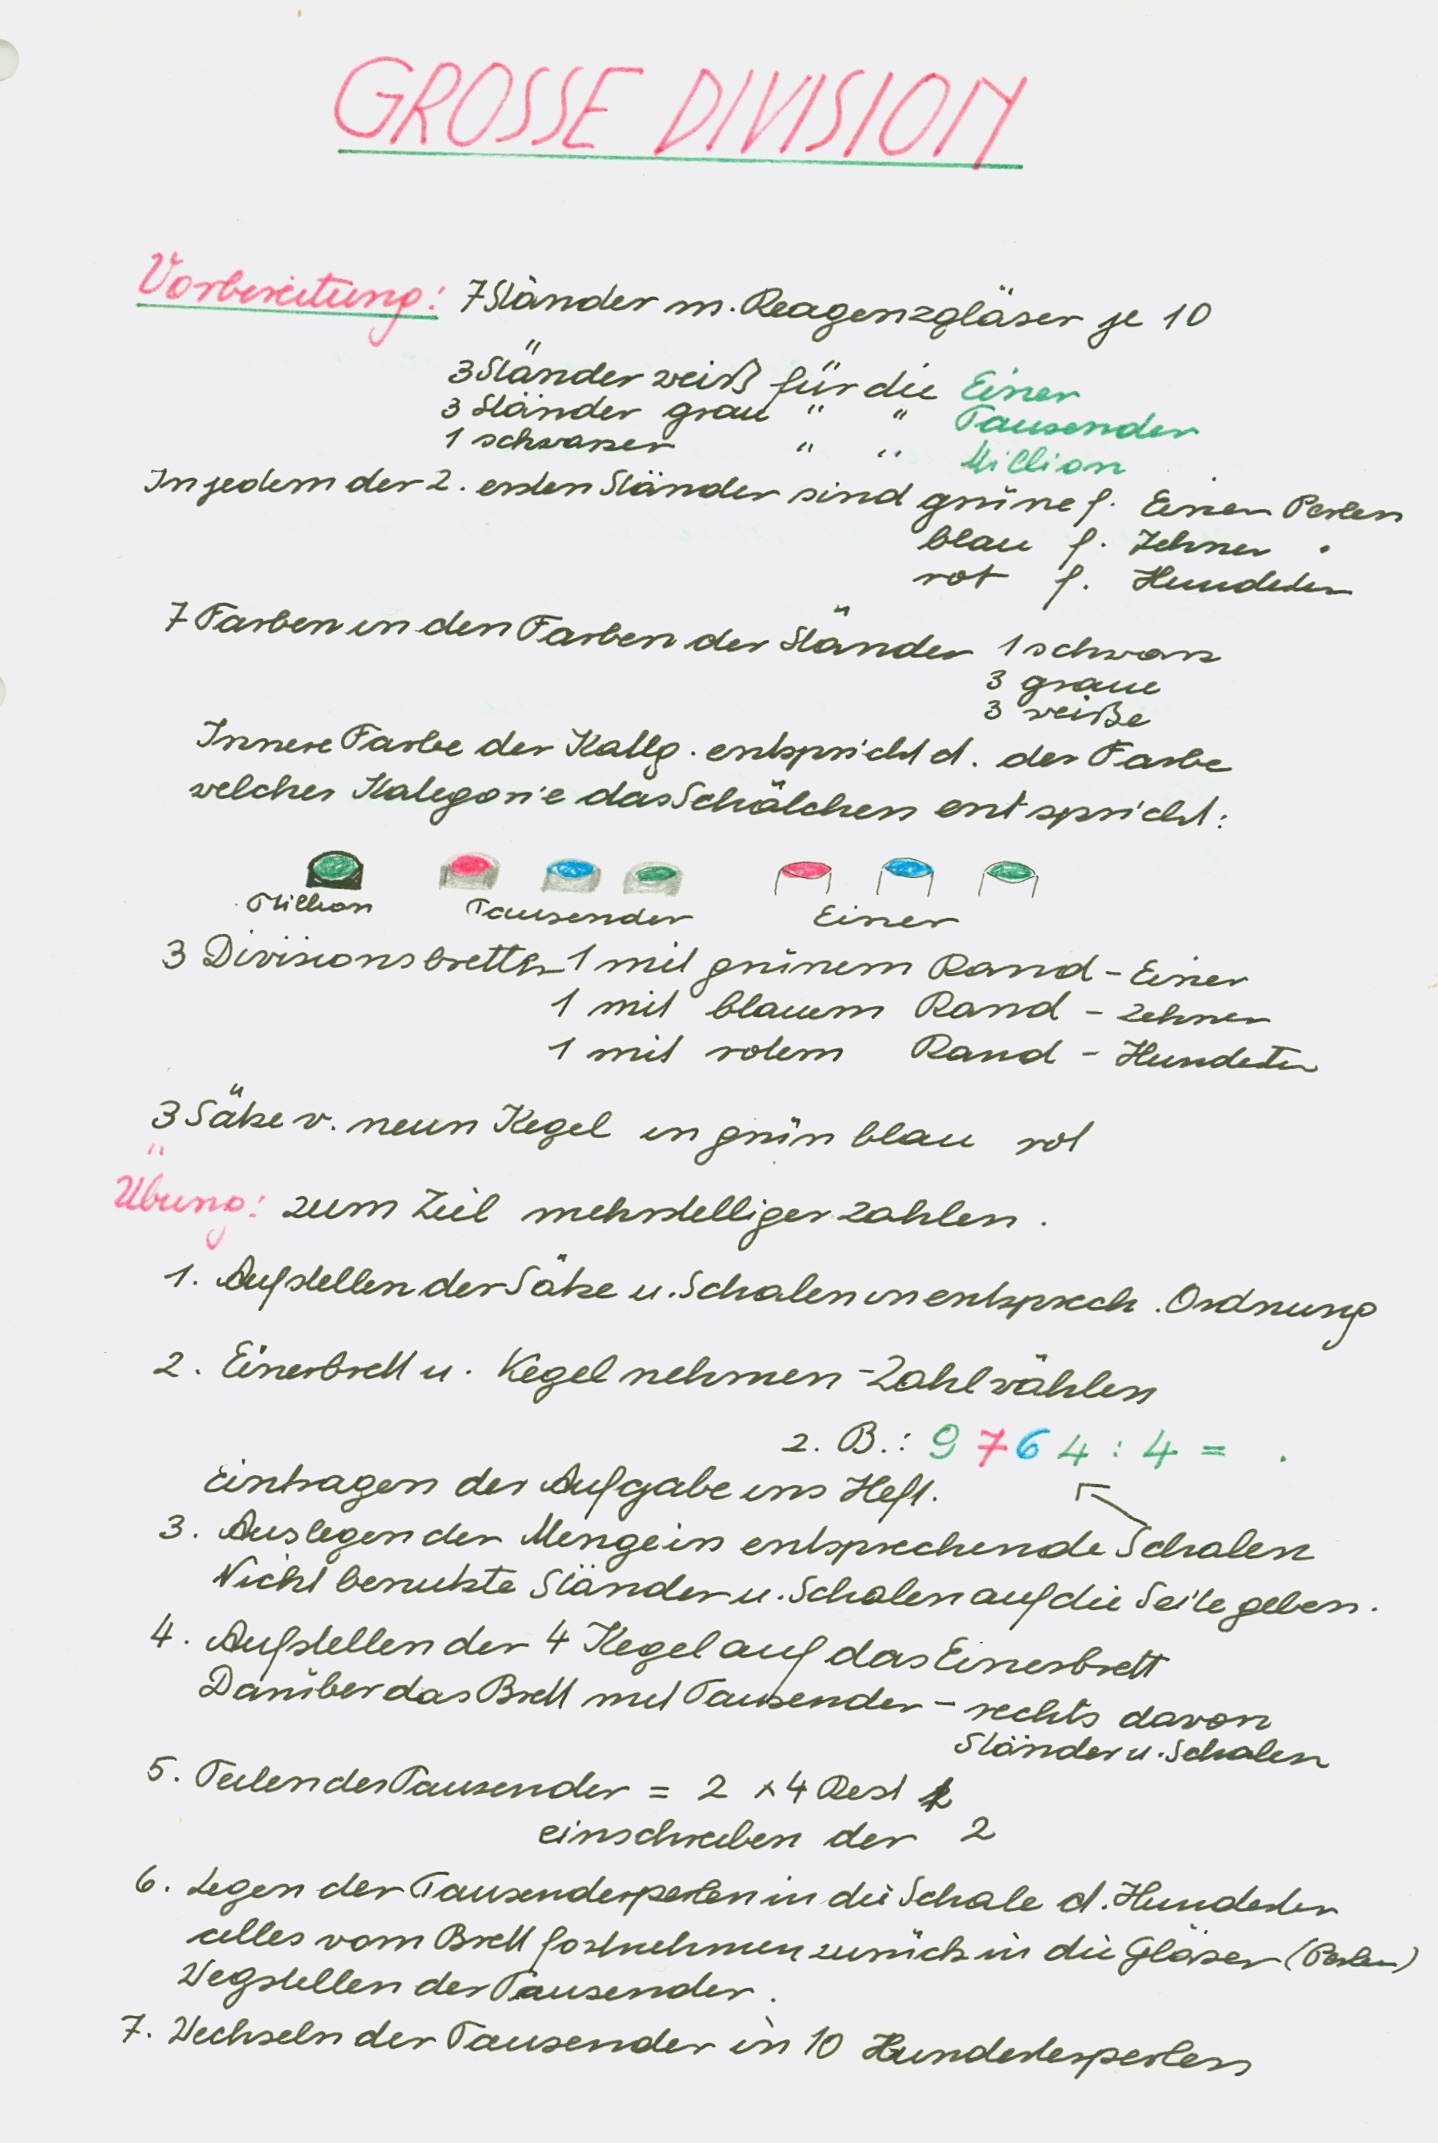 GROSSE DIVISION
Vorbereitung: 7 Ständer m. Reagenzgläser je 10
3 Ständer weiß für die Einer
3 Ständer grau " " Tausender
1 schwarzer " " Million
In jedem der 2. ersten Ständer sind grüne f. Einer Perlen
blau f. Zehner "
rot f. Hunderter
7 Farben in den Farben der Ständer 1 schwarz
3 graue
3 weiße
Innere Farbe der entspricht d. der Farbe
welcher Kategorie das Schälchen entspricht:
Million Tausender Einer
3 Divisionsbretter 1 mit grünem Rand - Einer
1 mit blauem Rand - Zehner
1 mit rotem Rand - Hunderter
3 Sätze v. neun Kegel in grün blau rot
Übung: zum Ziel mehrstelliger Zahlen.
1. Aufstellen der Sätze u. Schalen in entsprech. Ordnung
2. Einerbrett u. Kegel nehmen - Zahl wählen
z. B.: 9764 : 4 = .
Eintragen der Aufgabe ins Heft.
3. Auslegen der Menge in entsprechende Schalen
Nicht benutzte Ständer u. Schalen auf die Seite geben.
4. Aufstellen der 4 Kegel auf das Einerbrett
Darüber das Brett mit Tausender - rechts davon
Ständer u. Schalen
5. Teilen der Tausender = 2 x 4 Rest 1
einschreiben der 2
6. Legen der Tausenderperlen in die Schale d. Hunderter
alles vom Brett fortnehmen zurück in die Gläser (Perlen)
Wegstellen der Tausender.
7. Wechseln der Tausender in 10 Hunderterperlen